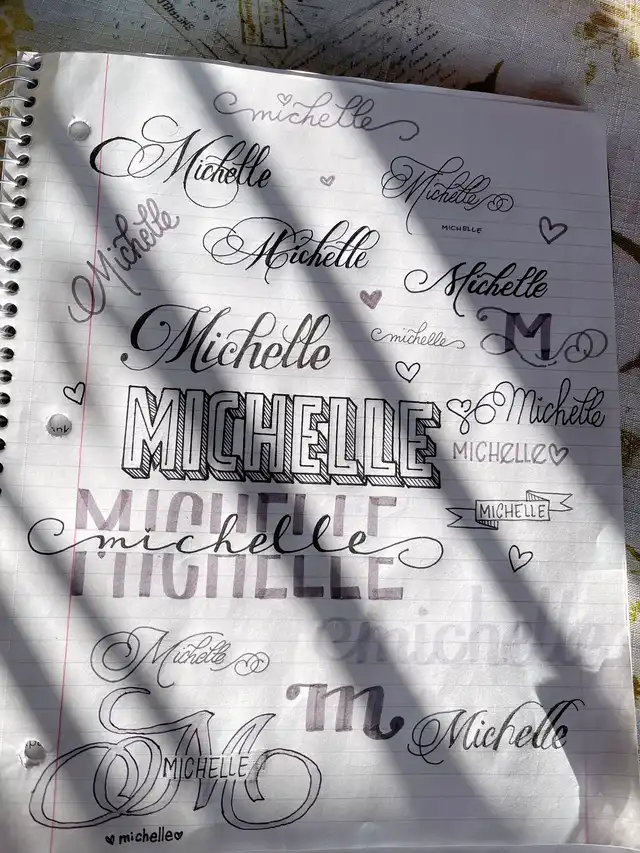 michelle
Michelle
Michelle
MICHELLE
Michelle
Michelle
Michelle
Michelle
michelle
M
Michelle
MICHELLE
Michelle
MICHELLE
MICHELLE
MICHELLE
michelle
michelle
Michelle
m
Michelle
M
MICHELLE
michelle